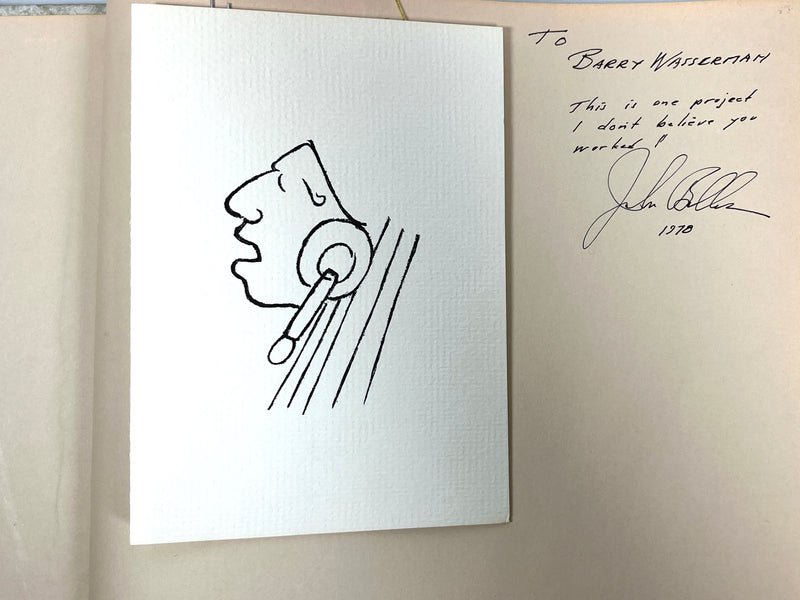 To
Barry Wasserman
This is one project
I don't believe you
worked
John
1978